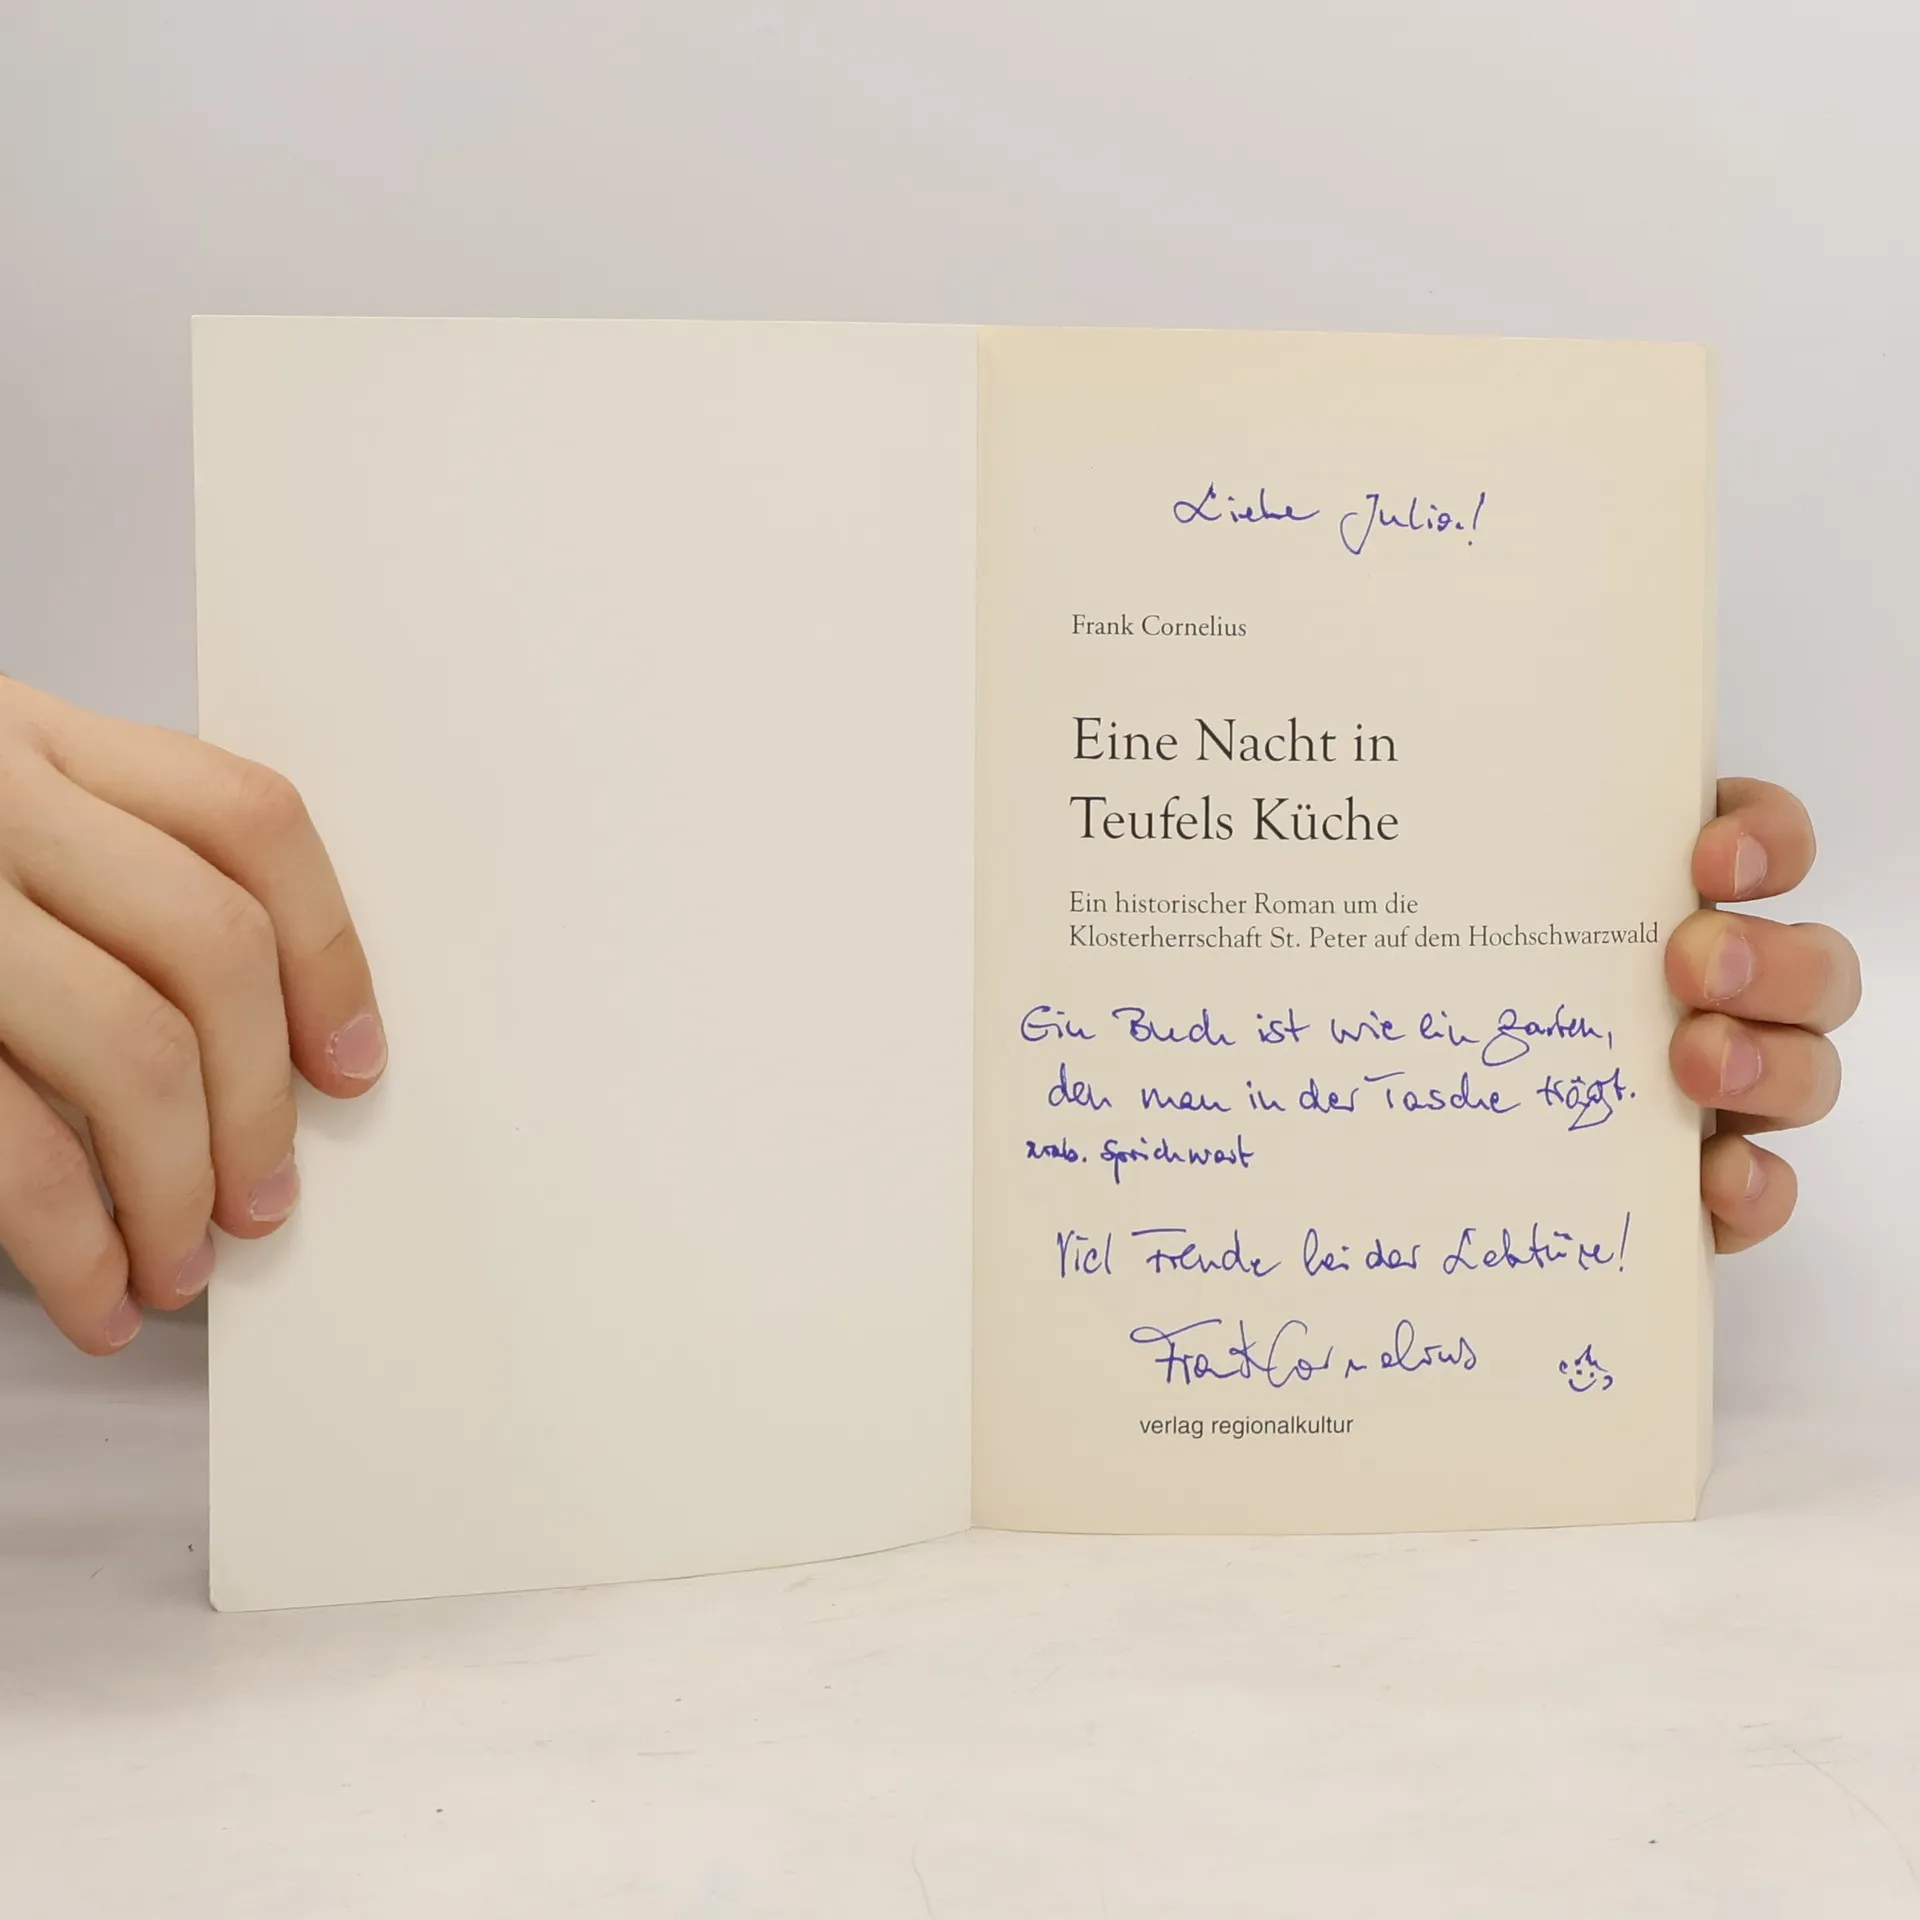 Liebe Julia!
Frank Cornelius
Eine Nacht in
Teufels Küche
Ein historischer Roman um die
Klosterherrschaft St. Peter auf dem Hochschwarzwald
Ein Buch ist wie ein Garten,
den man in der Tasche trägt.
arab. Sprichwort
Viel Freude bei der Lektüre!
Frank Cornelius
verlag regionalkultur